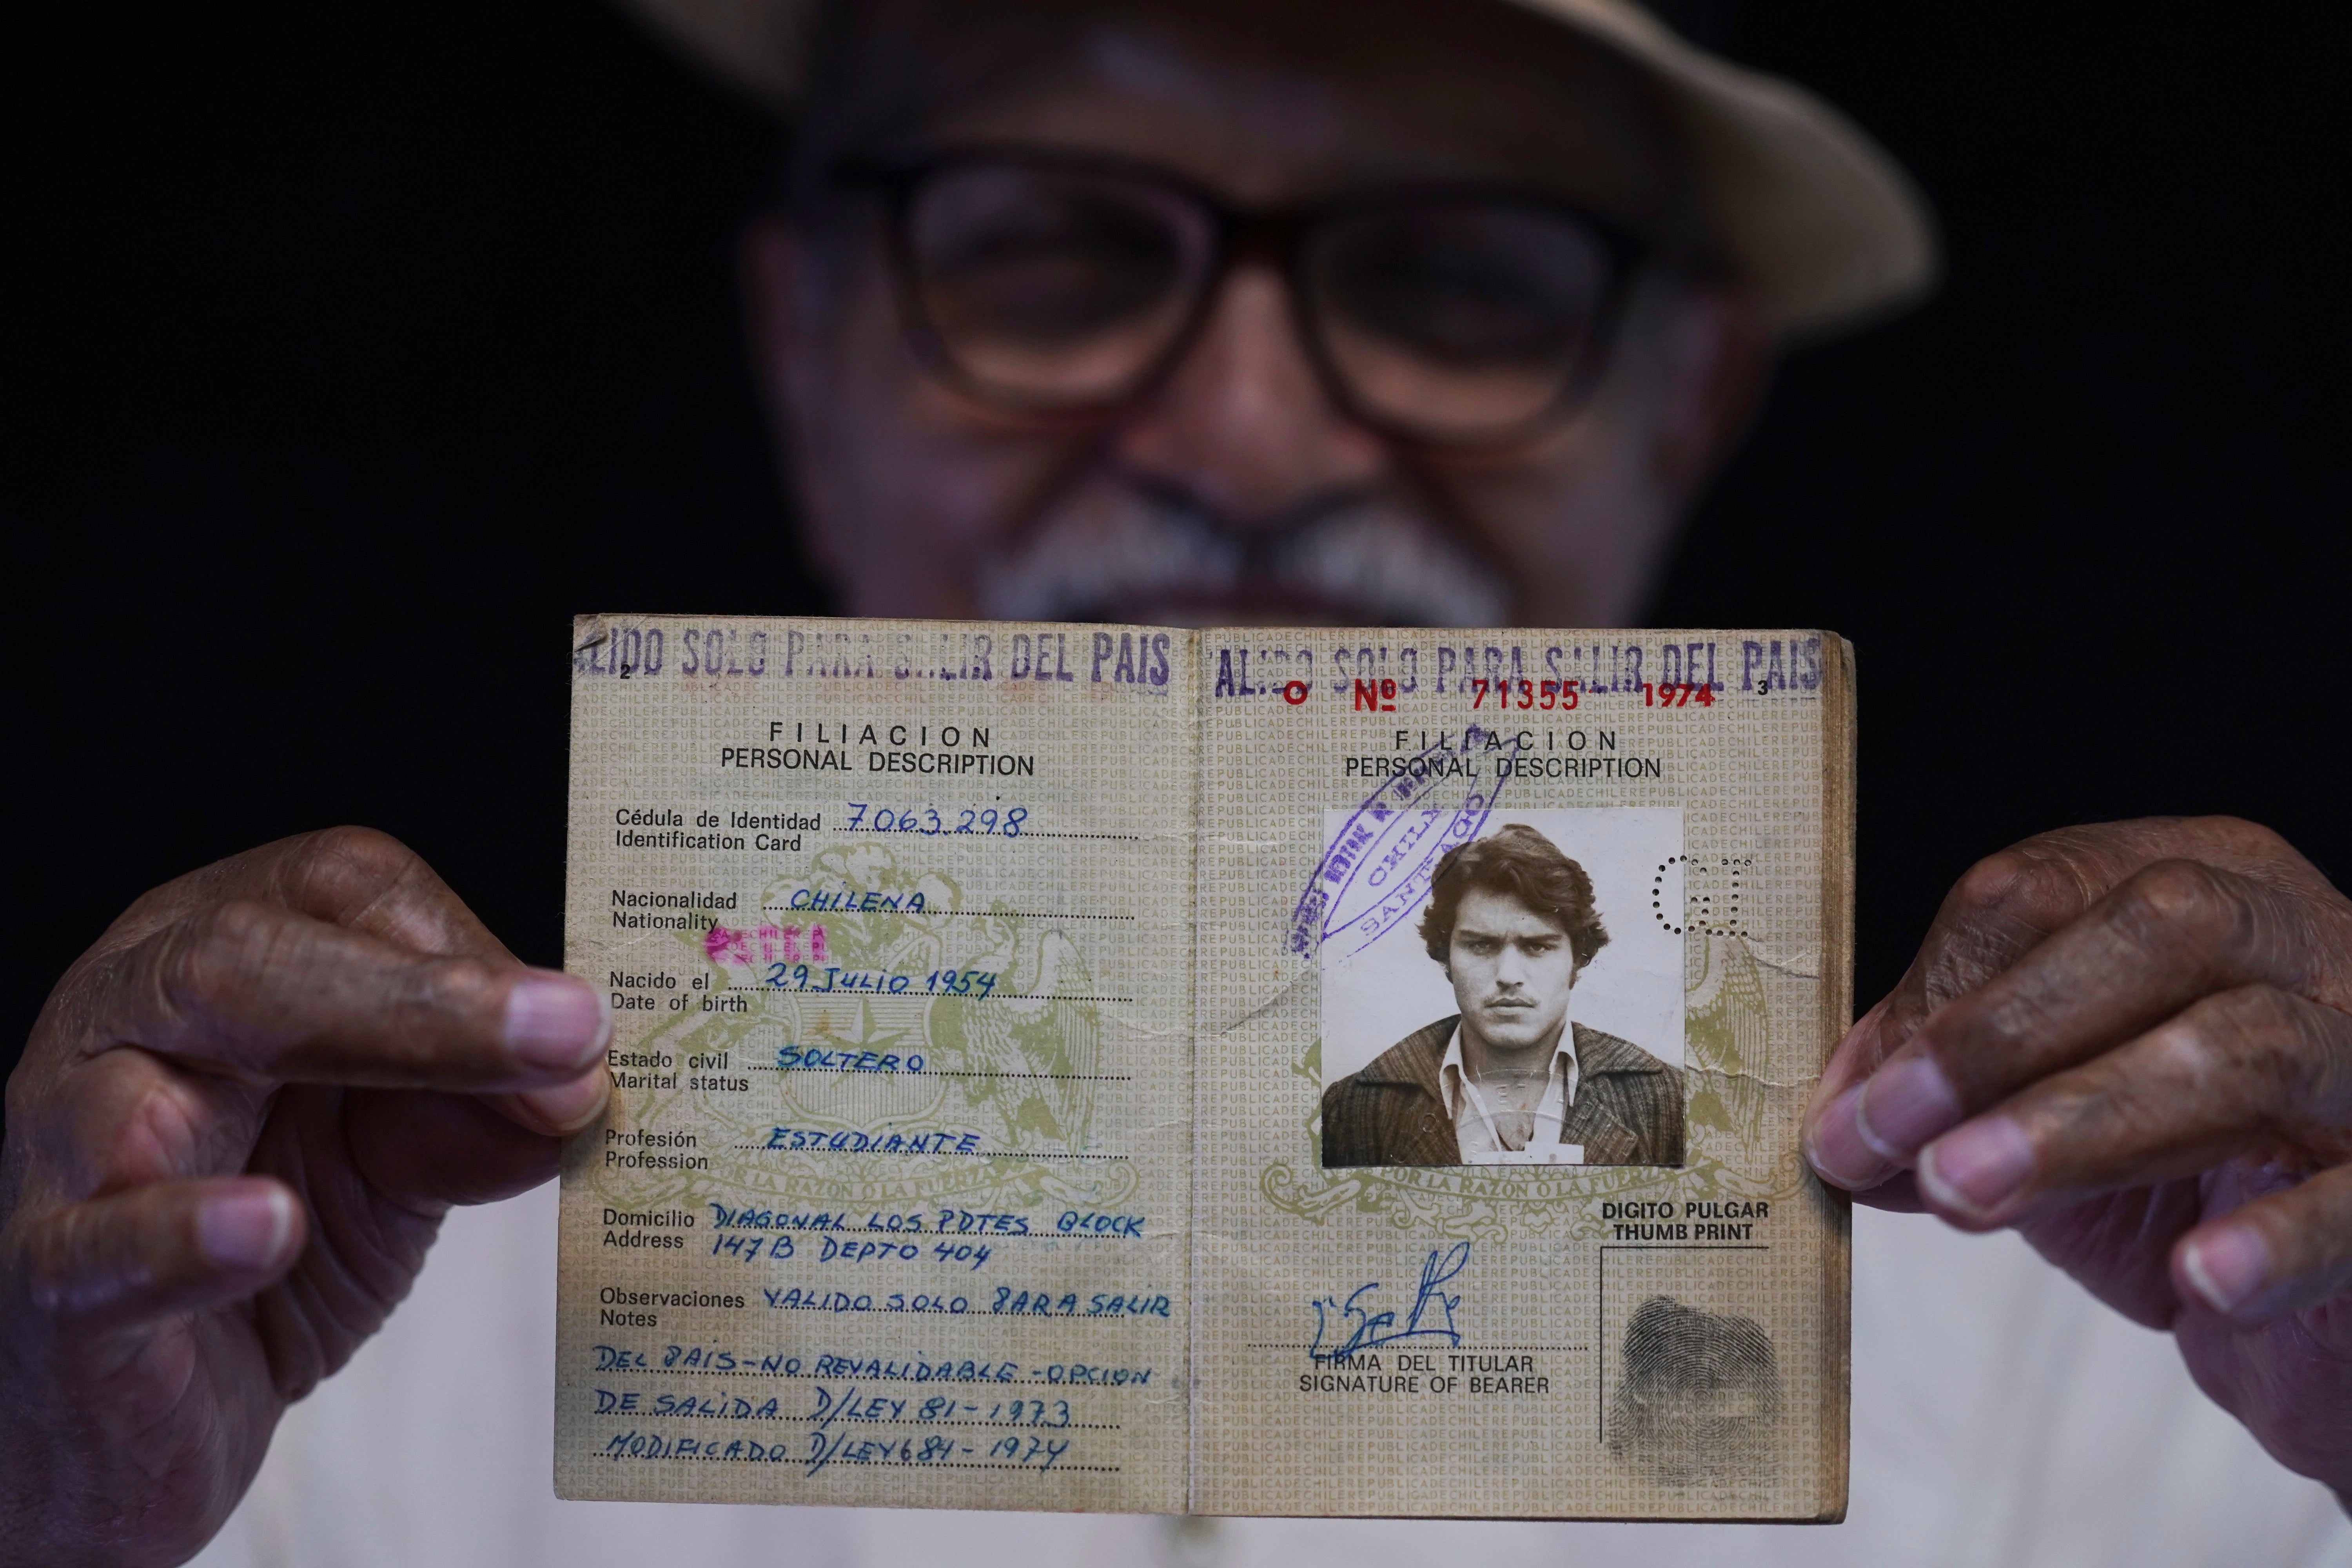 ALIDO SOLO PARA SALIR DEL PAIS
2
FILIACION
PERSONAL DESCRIPTION
Cédula de Identidad 7063.298
Identification Card
Nacionalidad CHILENA
Nationality
Nacido el 29 JULIO 1954
Date of birth
Estado civil SOLTERO
Marital status
Profesión ESTUDIANTE
Profession
POR LA RAZON O LA FUERZA
Domicilio DIAGONAL LOS PDTES BLOCK
Address 147B DEPTO 404
Observaciones VALIDO SOLO PARA SALIR
Notes
DEL PAIS-NO REVALIDABLE-OPCION
DE SALIDA D/LEY 81-1973
MODIFICADO D/LEY 684-1974
ALIDO SOLO PARA SALIR DEL PAIS
O Nº 71355 1974 3
FILIACION
PERSONAL DESCRIPTION
CHILE
SANTIAGO
POR LA RAZON O LA FUERZA
DIGITO PULGAR
THUMB PRINT
FIRMA DEL TITULAR
SIGNATURE OF BEARER